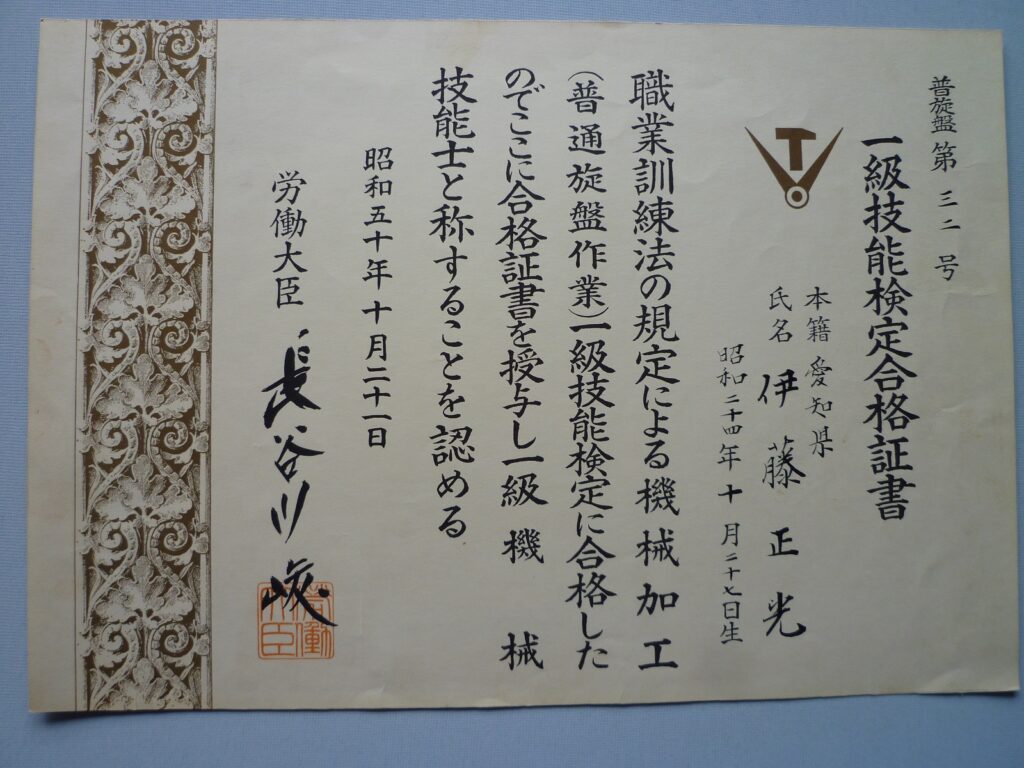 普旋盤第三二号
一級技能検定合格証書
本籍 愛知県
氏名 伊藤正光
昭和二十四年十月二十七日生
職業訓練法の規定による機械加工
(普通旋盤作業)一級技能検定に合格した
のでここに合格証書を授与し一級機械
技能士と称することを認める
昭和五十年十月二十一日
労働大臣 長谷川峻
労働大臣